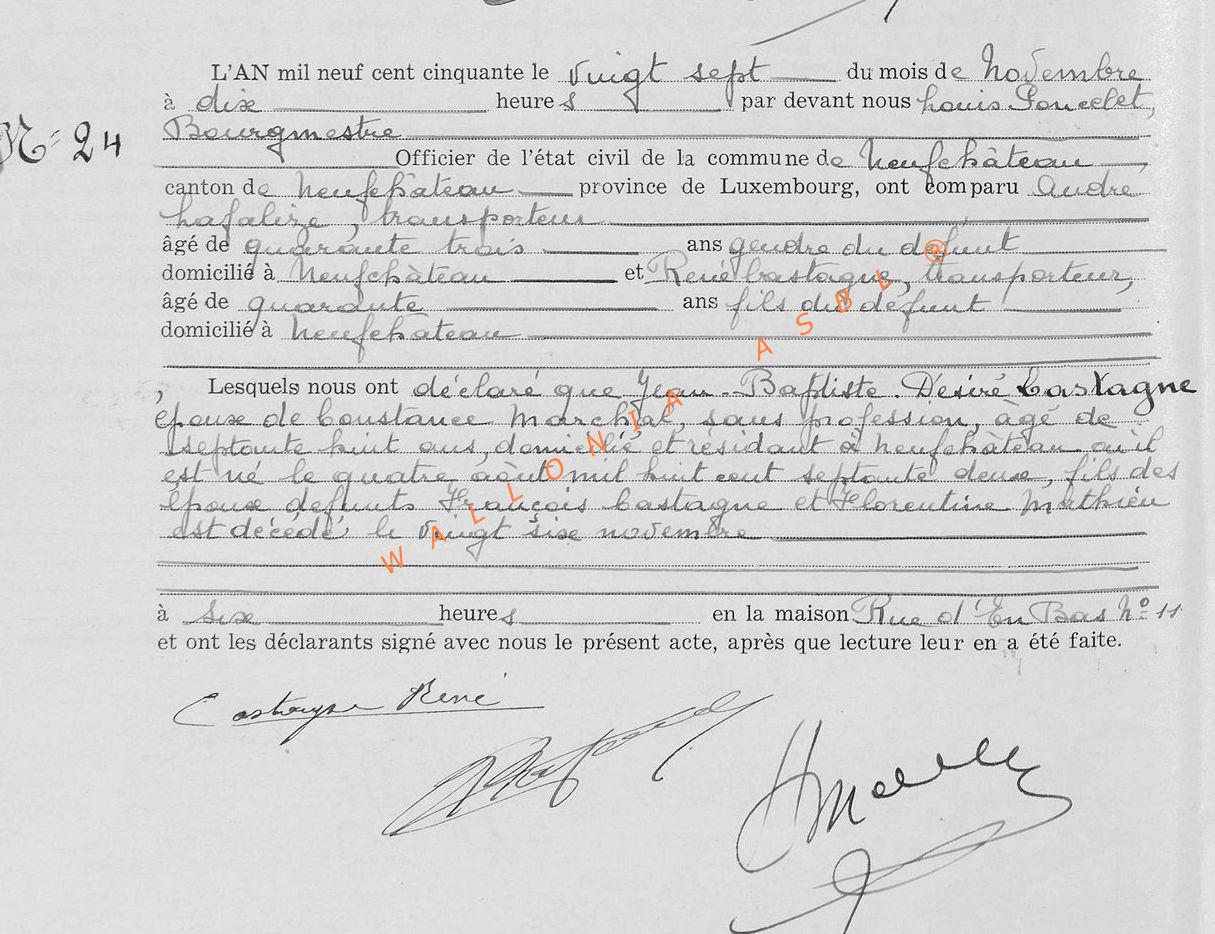 L'AN mil neuf cent cinquante le vingt sept du mois de Novembre
à dix heures par devant nous Louis Poncelet,
Bourgmestre
N° 24
Officier de l'état civil de la commune de Neufchâteau,
canton de Neufchâteau province de Luxembourg, ont comparu André
Lafalize, transporteur
âgé de quarante trois ans gendre du défunt
domicilié à Neufchâteau et René Castagne, transporteur,
âgé de quarante ans fils du défunt
domicilié à Neufchâteau
Lesquels nous ont déclaré que Jean-Baptiste Désiré Castagne
époux de Constance Marchal, sans profession, âgé de
septante huit ans, domicilié et résidant à Neufchâteau où il
est né le quatre août mil huit cent septante deux, fils des
époux defunts François Castagne et Florentine Mathieu
est décédé le vingt six novembre
à six heures en la maison Rue d'En Bas N° 11
et ont les déclarants signé avec nous le présent acte, après que lecture leur en a été faite.
Castagne René
WALLONIA ASBL ®